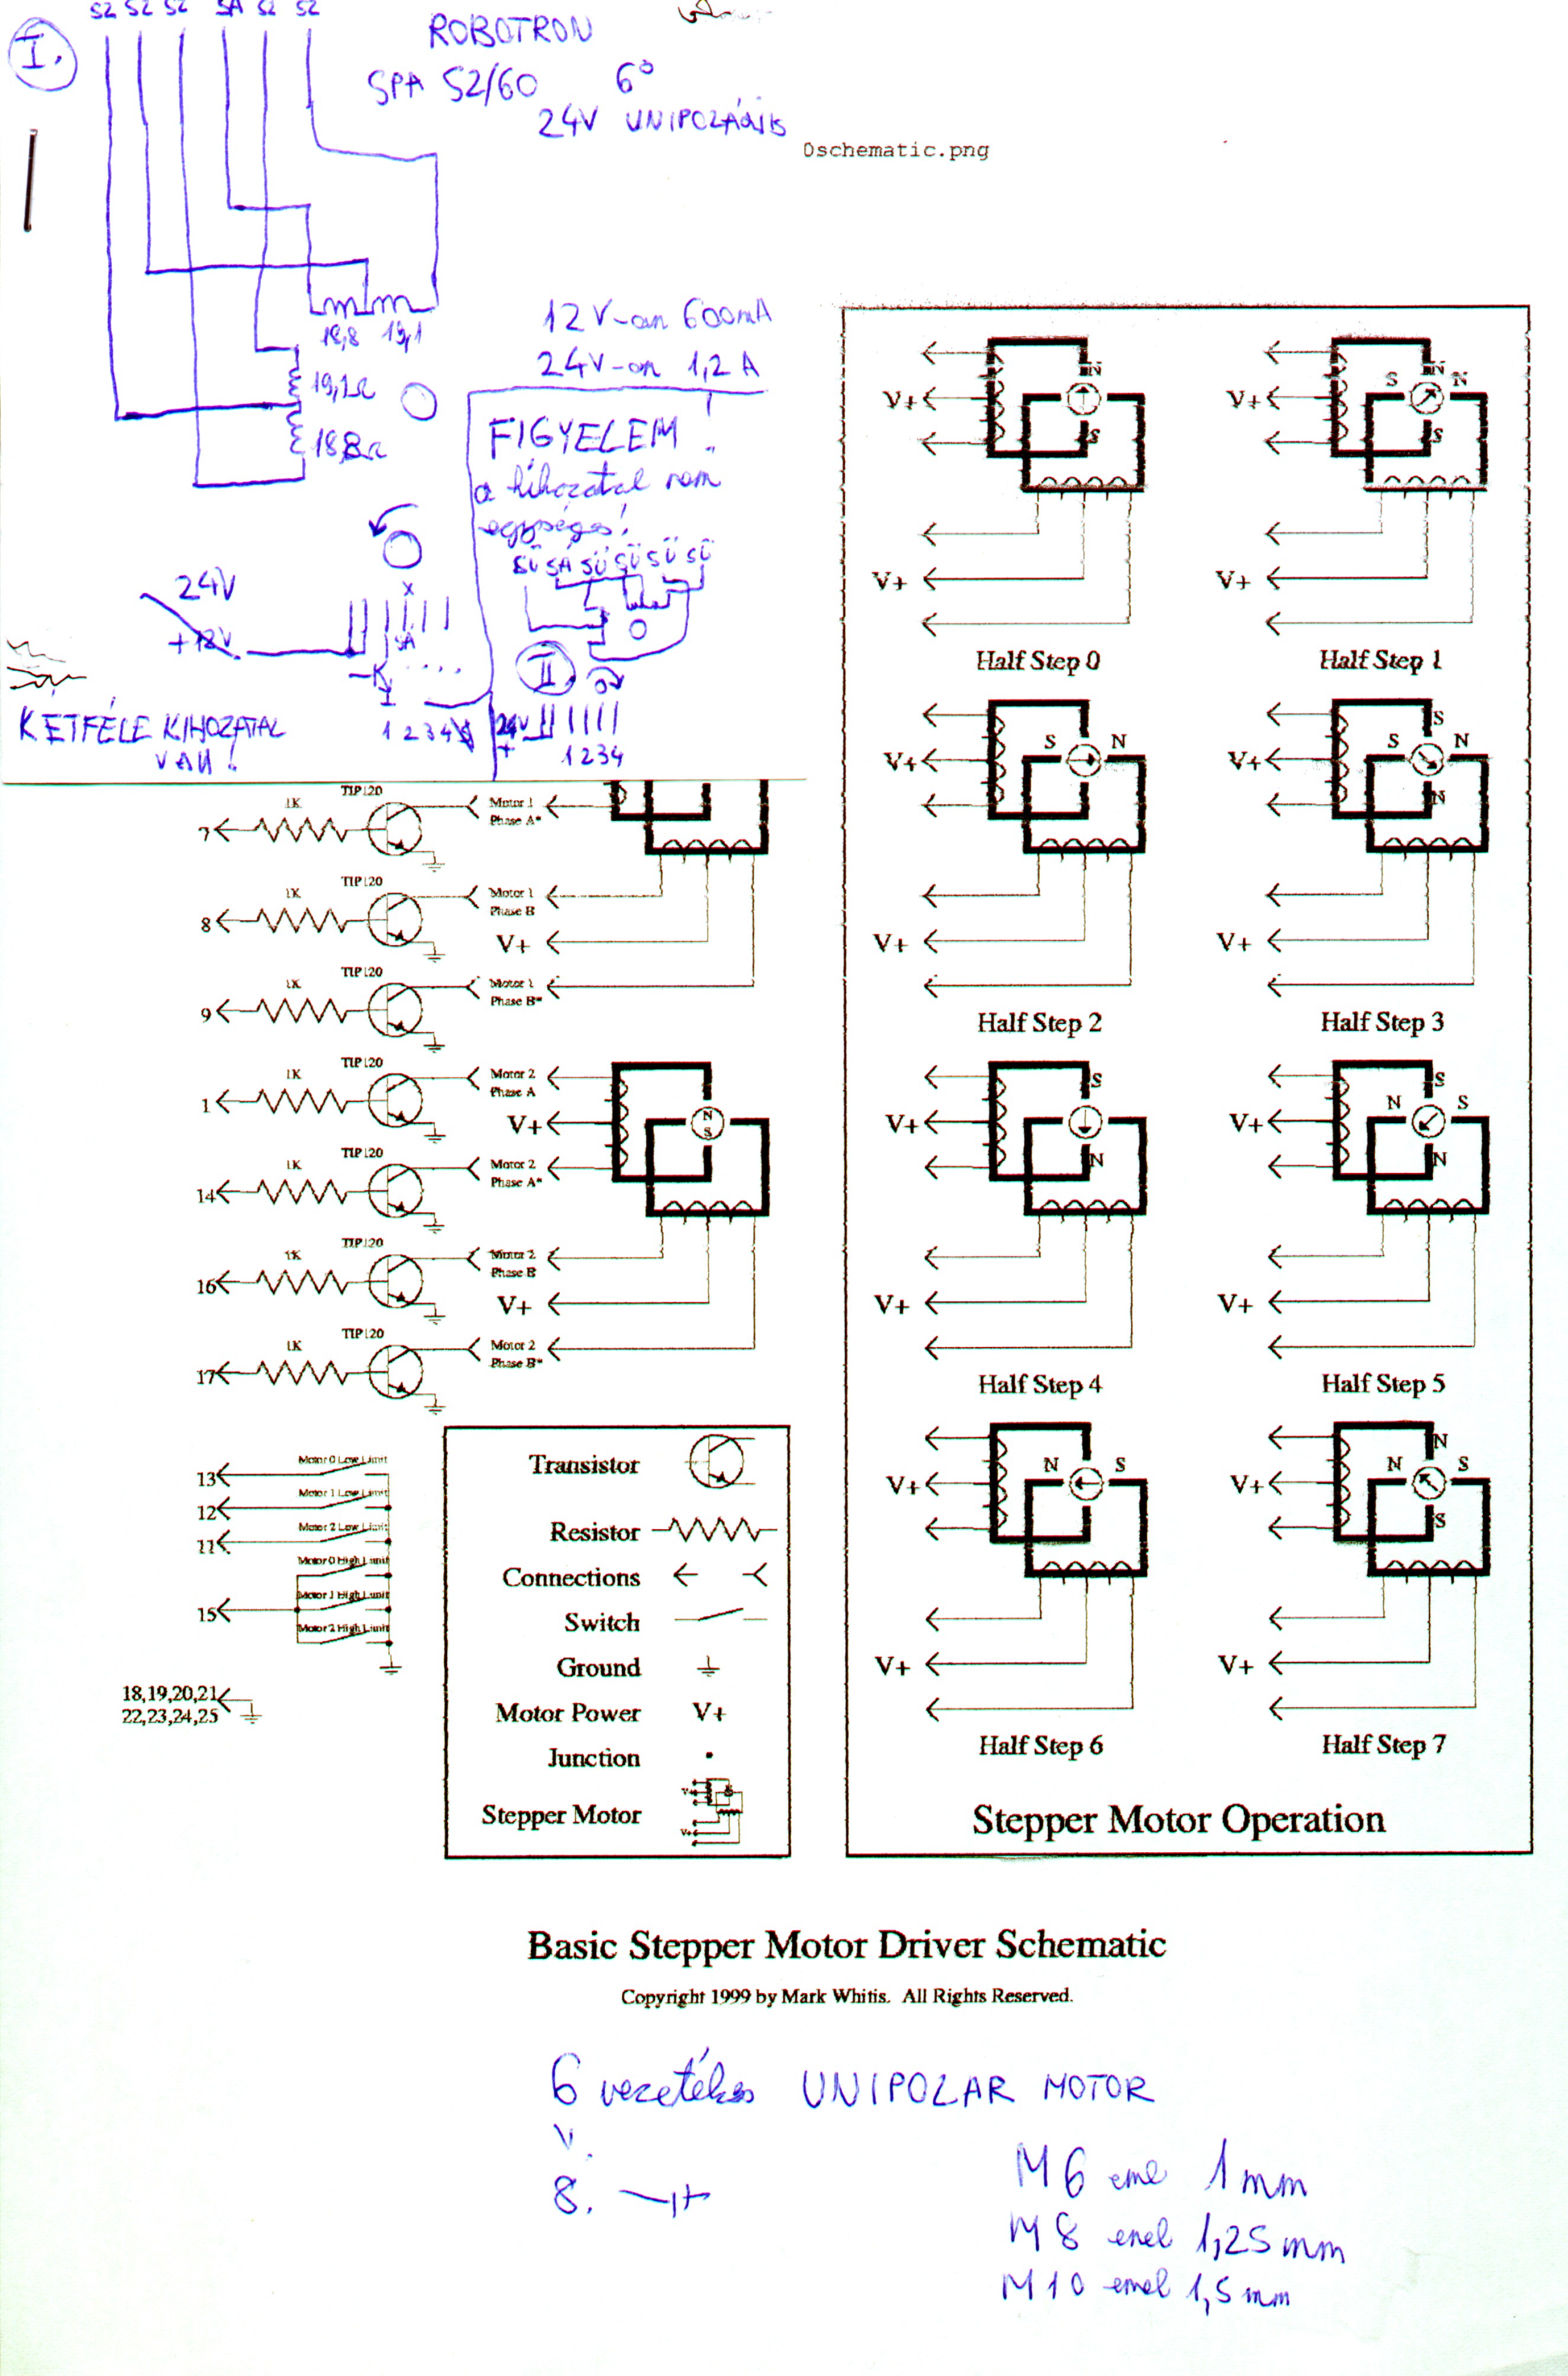 SZ SZ SZ SA SZ SZ
I.
ROBOTRON
SPA 52/60 6°
24V UNIPOLÁRIS
0schematic.png
18,8 19,1
19,1Ω
18,8Ω
12V-on 600mA
24V-on 1,2 A
FIGYELEM!
a kihozatal nem
egységes!
SÜ SÁ SÜ SÜ SÜ SÜ
II.
24V
+
1 2 3 4
24V
+12V
X
SÁ
1 2 3 4
KÉTFÉLE KIHOZATAL
VAN!
7 1K TIP120 Motor 1
Phase A*
8 1K TIP120 Motor 1
Phase B
V+
9 1K TIP120 Motor 1
Phase B*
1 1K TIP120 Motor 2
Phase A
V+
N
S
14 1K TIP120 Motor 2
Phase A*
16 1K TIP120 Motor 2
Phase B
V+
17 1K TIP120 Motor 2
Phase B*
13 Motor 0 Low Limit
12 Motor 1 Low Limit
11 Motor 2 Low Limit
Motor 0 High Limit
15 Motor 1 High Limit
Motor 2 High Limit
18,19,20,21
22,23,24,25
Transistor
Resistor
Connections
Switch
Ground
Motor Power V+
Junction
Stepper Motor
V+
V+
V+ N S
V+
Half Step 0
V+ S N N S
V+
Half Step 1
V+ S N
V+
Half Step 2
V+ S S N N
V+
Half Step 3
V+ S N
V+
Half Step 4
V+ N S S N
V+
Half Step 5
V+ N S
V+
Half Step 6
V+ N N S S
V+
Half Step 7
Stepper Motor Operation
Basic Stepper Motor Driver Schematic
Copyright 1999 by Mark Whitis. All Rights Reserved.
6 vezetékes UNIPOLAR MOTOR
v.
8. —||—
M6 emel 1mm
M8 emel 1,25mm
M10 emel 1,5mm